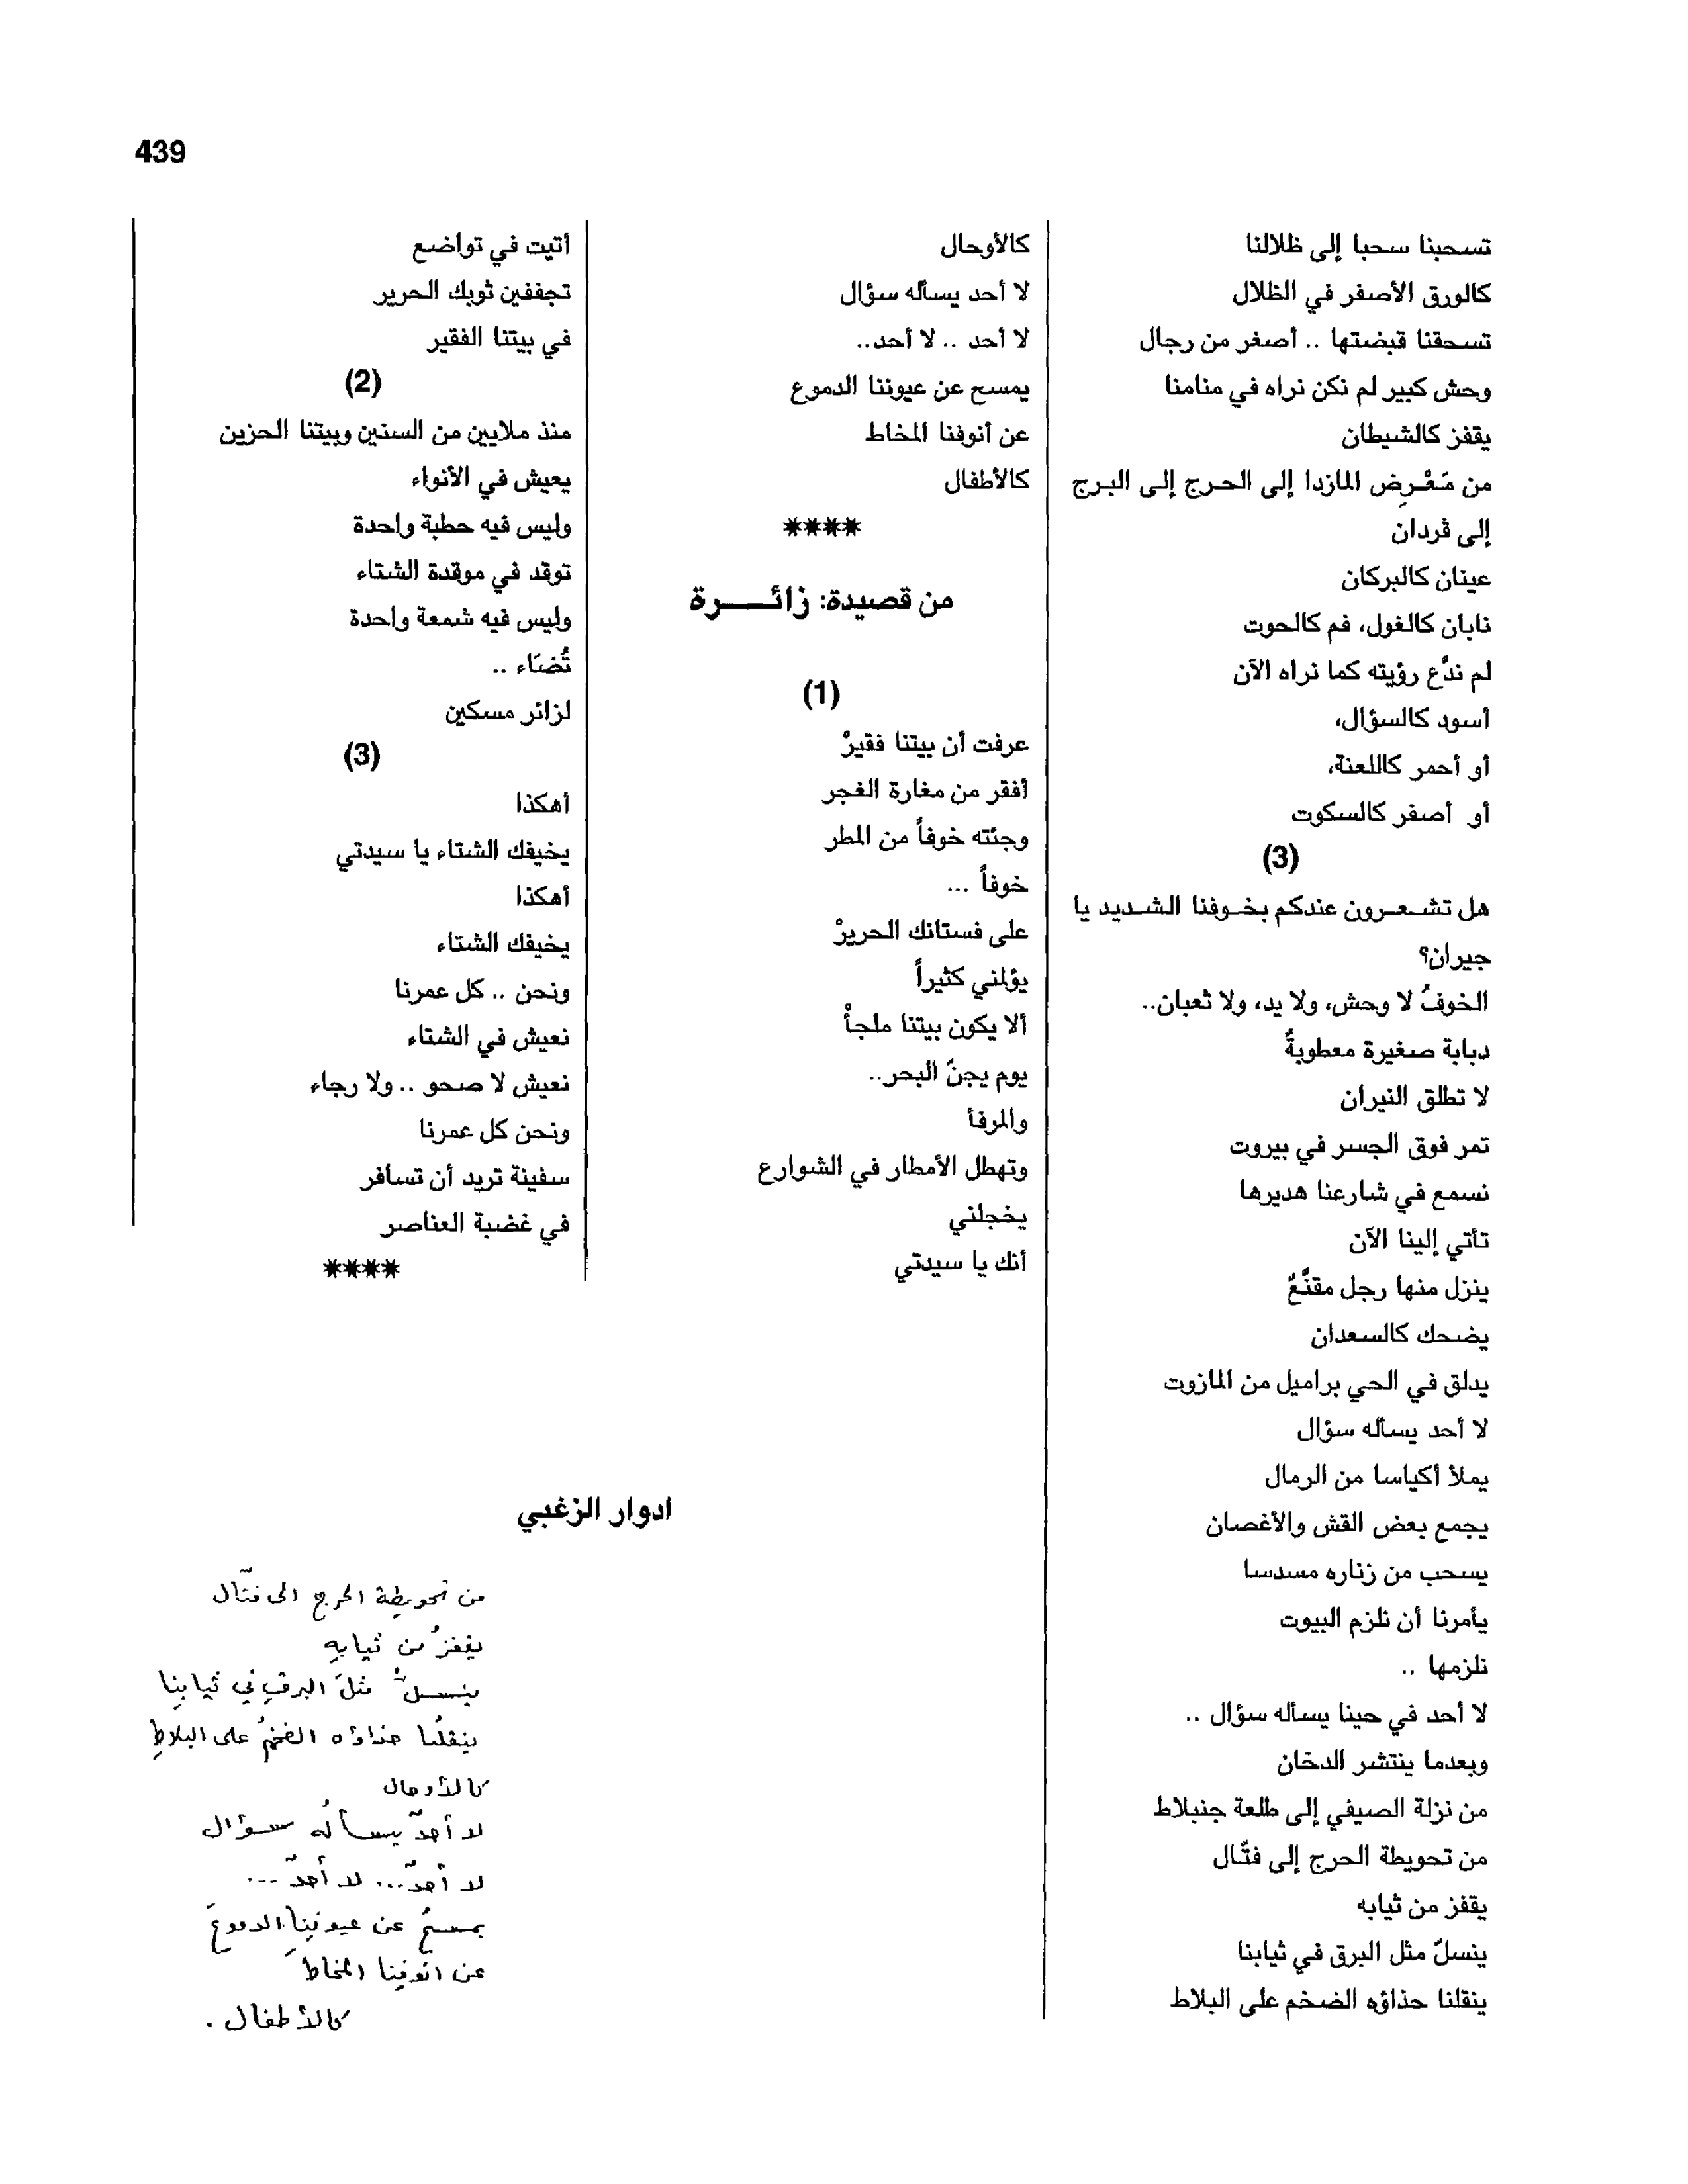 439
تسحبنا سحبا إلى ظلالنا
كالورق الأصفر في الظلال
تسحقنا قبضتها .. أصغر من رجال
وحش كبير لم نكن نراه في منامنا
يقفز كالشيطان
من مَعْرِض المازدا إلى الحرج إلى البرج
إلى ڤردان
عينان كالبركان
نابان كالغول، فم كالحوت
لم ندَّع رؤيته كما نراه الآن
أسود كالسؤال،
أو أحمر كاللعنة،
أو أصفر كالسكوت
(3)
هل تشعرون عندكم بخوفنا الشديد يا
جيران؟
الخوفُ لا وحش، ولا يد، ولا ثعبان..
دبابة صغيرة معطوبةٌ
لا تطلق النيران
تمر فوق الجسر في بيروت
نسمع في شارعنا هديرها
تأتي إلينا الآن
ينزل منها رجل مقنَّعٌ
يضحك كالسعدان
يدلق في الحي براميل من المازوت
لا أحد يسأله سؤال
يملأ أكياسا من الرمال
يجمع بعض القش والأغصان
يسحب من زناره مسدسا
يأمرنا أن نلزم البيوت
نلزمها ..
لا أحد في حينا يسأله سؤال ..
وبعدما ينتشر الدخان
من نزلة الصيفي إلى طلعة جنبلاط
من تحويطة الحرج إلى فتّال
يقفز من ثيابه
ينسلّ مثل البرق في ثيابنا
ينقلنا حذاؤه الضخم على البلاط
كالأوحال
لا أحد يسأله سؤال
لا أحد .. لا أحد..
يمسح عن عيوننا الدموع
عن أنوفنا المخاط
كالأطفال
****
من قصيدة: زائـــرة
(1)
عرفت أن بيتنا فقيرْ
أفقر من مغارة الغجر
وجئته خوفاً من المطر
خوفاً ...
على فستانك الحريرْ
يؤلمني كثيراً
ألا يكون بيتنا ملجأْ
يوم يجنّ البحر..
والمرفأ
وتهطل الأمطار في الشوارع
يخجلني
أنك يا سيدتي
أتيت في تواضع
تجففين ثوبك الحرير
في بيتنا الفقير
(2)
منذ ملايين من السنين وبيتنا الحزين
يعيش في الأنواء
وليس فيه حطبة واحدة
توقد في موقدة الشتاء
وليس فيه شمعة واحدة
تُضاء ..
لزائر مسكين
(3)
أهكذا
يخيفك الشتاء يا سيدتي
أهكذا
يخيفك الشتاء
ونحن .. كل عمرنا
نعيش في الشتاء
نعيش لا صحو .. ولا رجاء
ونحن كل عمرنا
سفينة تريد أن تسافر
في غضبة العناصر
****
ادوار الزغبي
من تحويطة الحرج الى فتّال
يقفزُ من ثيابِهِ
ينسلُّ مثلَ البرقِ في ثيابِنا
ينقلُنا حذاؤه الضخمُ على البلاطِ
كالأوحال
لا أحدٌ يسألُه سؤال
لا أحدٌ... لا أحدٌ...
يمسحُ عن عيونِنا الدموعَ
عن انوفِنا المخاطَ
كالأطفال .